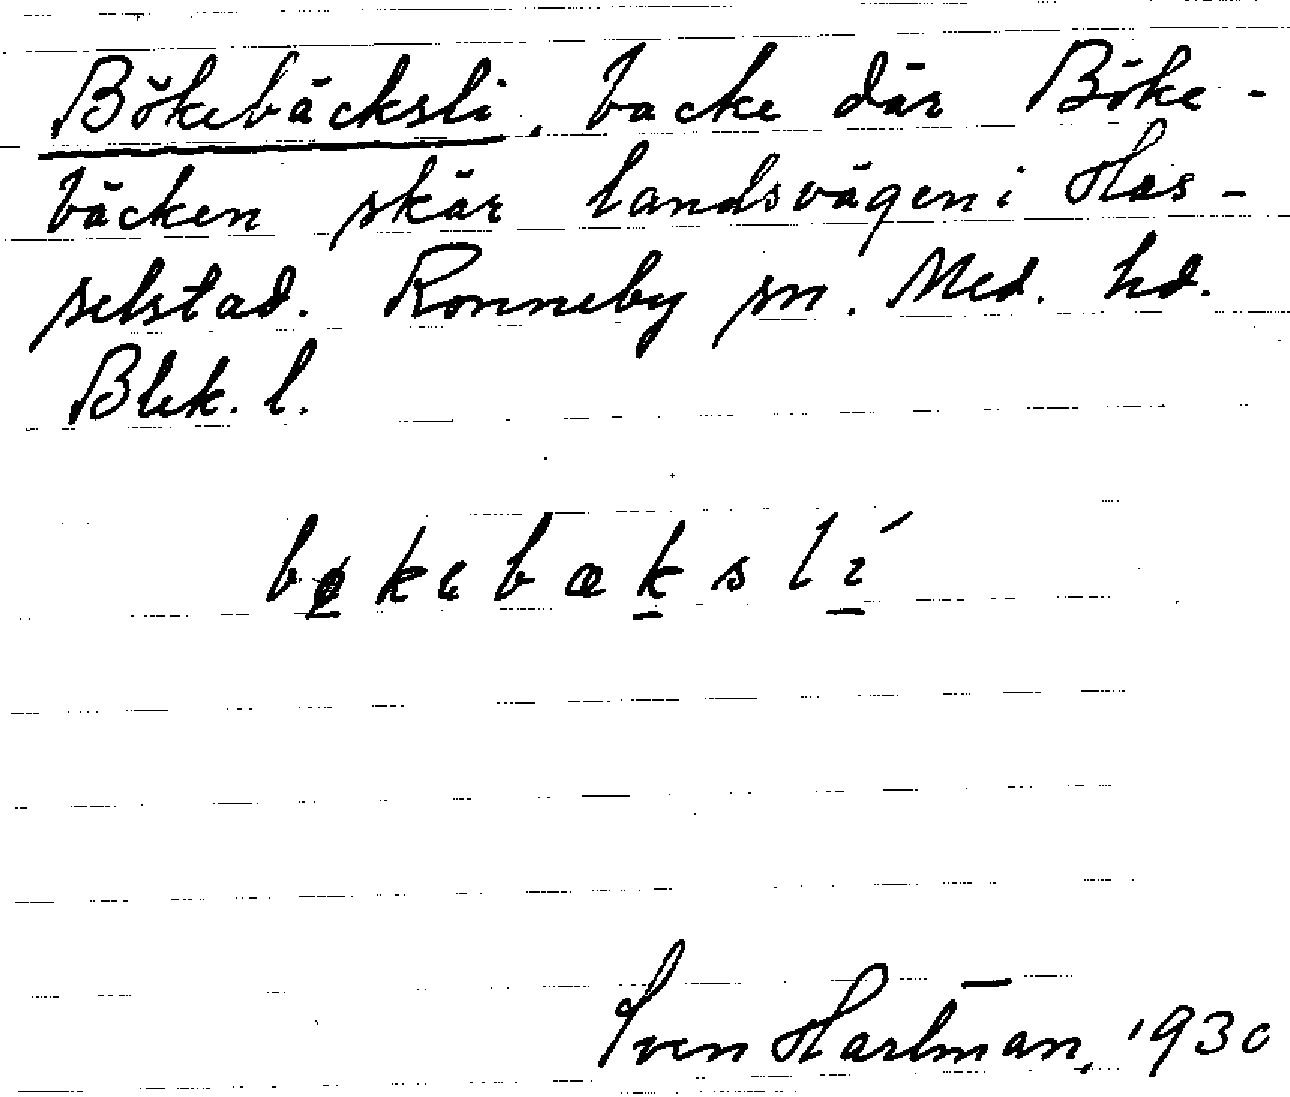 Bökebäcksli, backe där Böke-
bäcken skär landsvägen i Has-
selstad. Ronneby sn. Med. hd.
Blek. l.
bøkebækslí
Sven Hartman, 1930